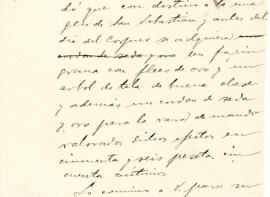 dó que con destino á la ima
gen de San Sebastian y antes del
dia del Corpus se adquiera un
cordon de seda y oro un fajin
grana con fleco de oro y un
arbol de tela de buena clase
y además un cordon de seda
y oro para la vara de mando
valorados dichos efectos en
cincuenta y seis pesetas cin
cuenta céntimos
Lo comunico á V. para su